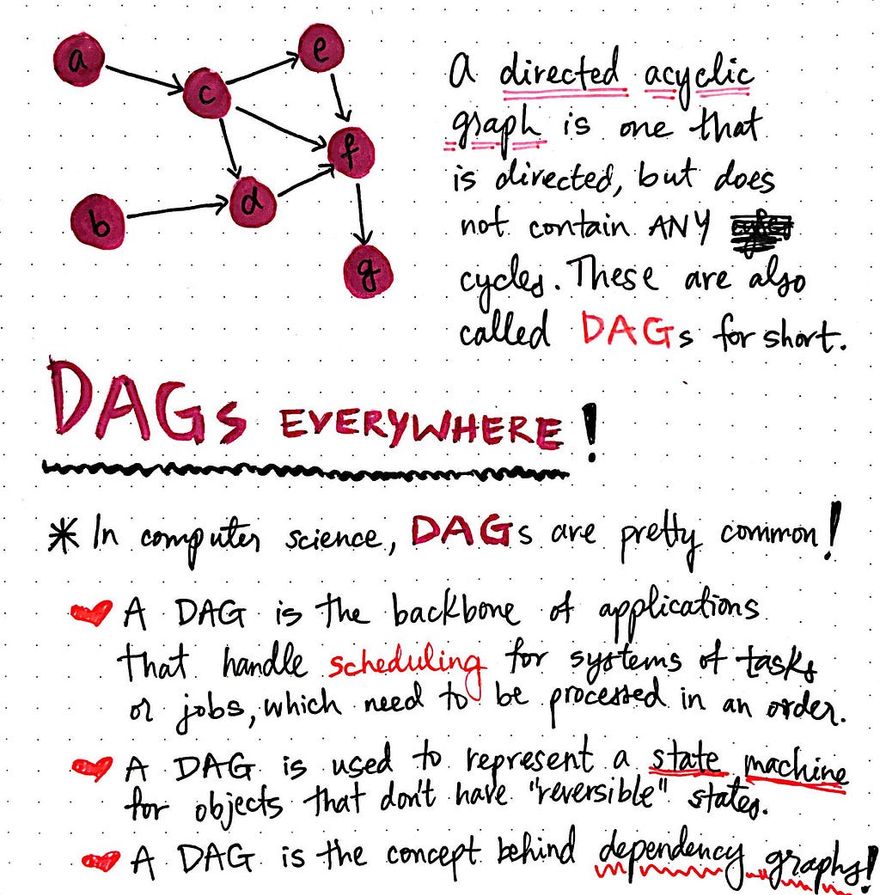 a
e
c
f
b
d
g
a directed acyclic
graph is one that
is directed, but does
not contain ANY
cycles. These are also
called DAGs for short.
DAGs EVERYWHERE!
* In computer science, DAGs are pretty common!
A DAG is the backbone of applications
that handle scheduling for systems of tasks
or jobs, which need to be processed in an order.
A DAG is used to represent a state machine
for objects that don't have "reversible" states.
A DAG is the concept behind dependency graphs!